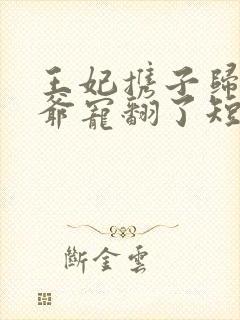 王妃携子歸
爺寵翻了短
斷金雲